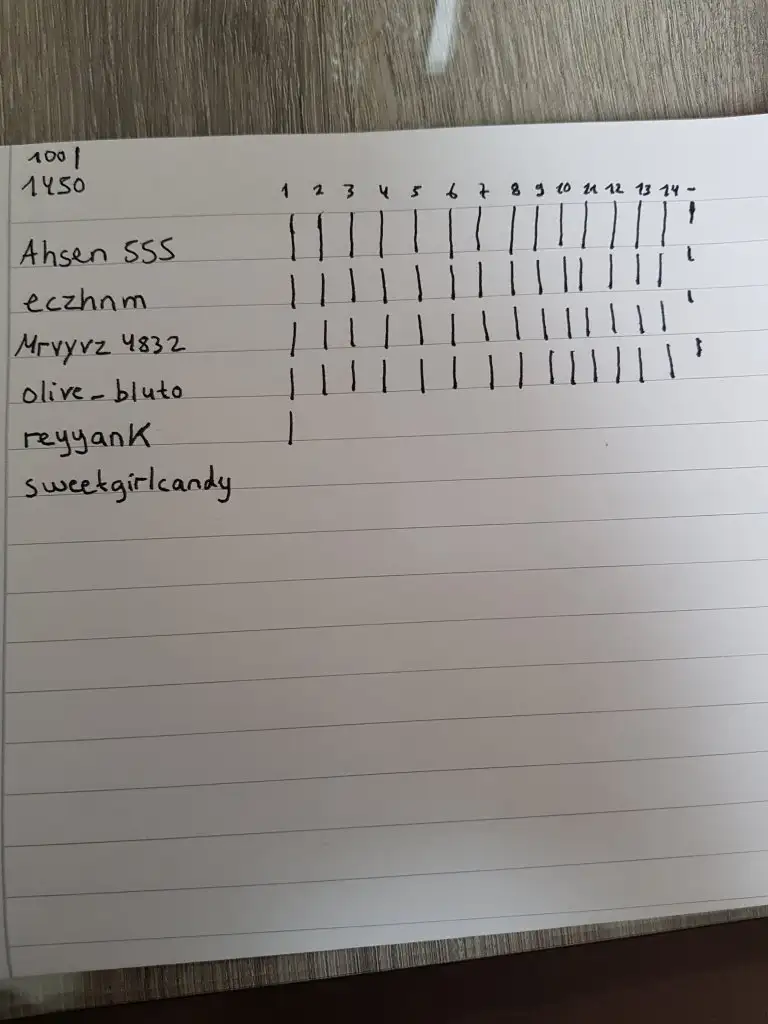 100 |
1450
1 2 3 4 5 6 7 8 9 10 11 12 13 14 -
Ahsen 555 | | | | | | | | | | | | | | '
eczhnm | | | | | | | | | | | | | | '
Mrvyvz 4832 | | | | | | | | | | | | | | '
olive_bluto | | | | | | | | | | | | | | '
reyyanK |
sweetgirlcandy